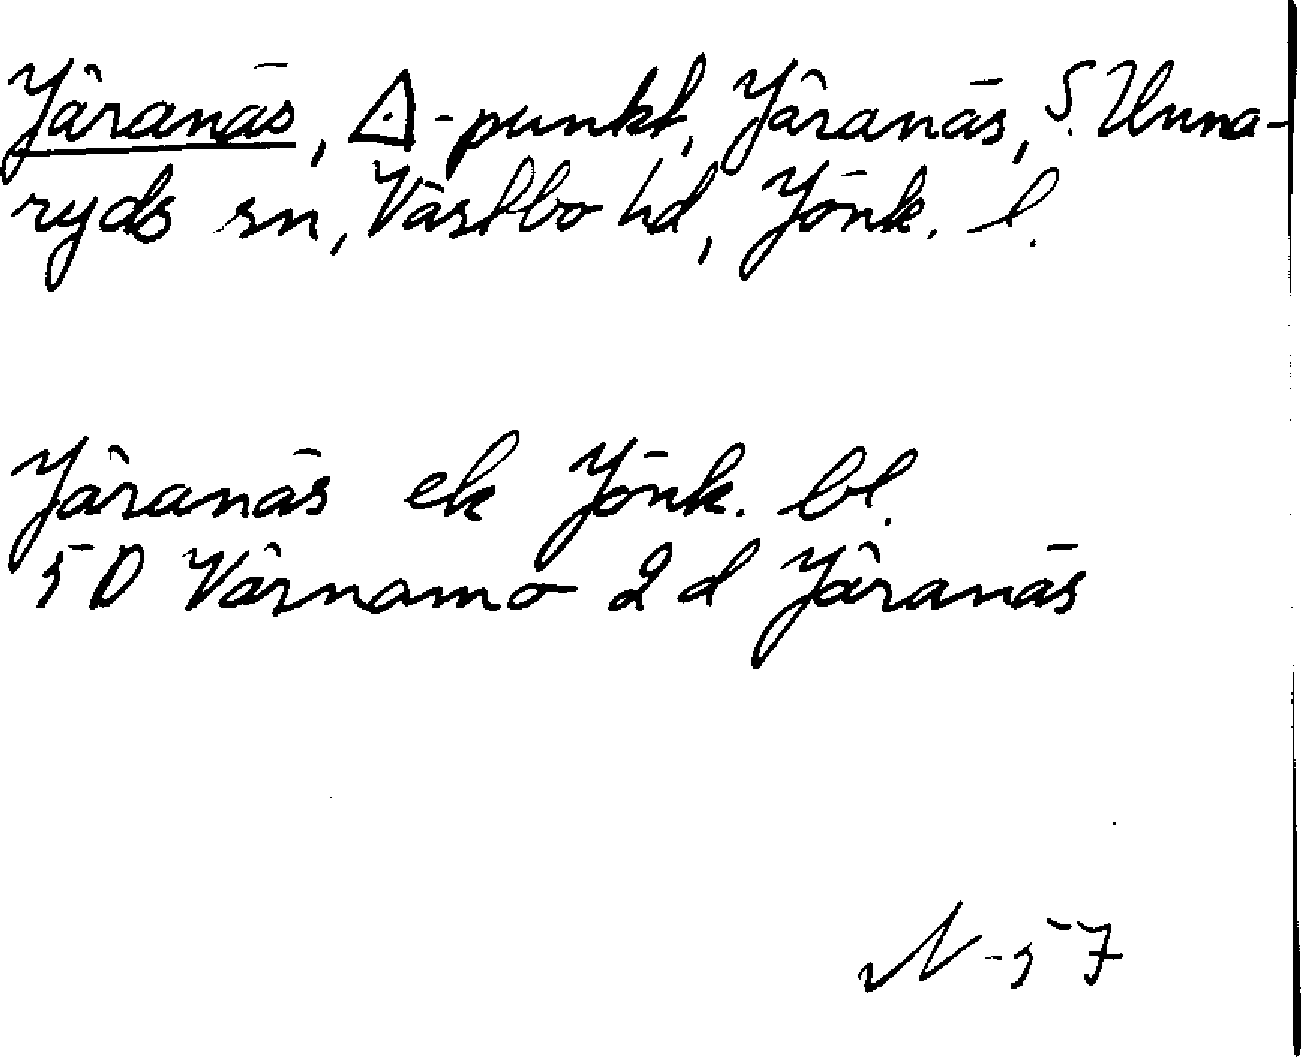 Järanäs, △-punkt, Järanäs, S. Unna-
ryds sn, Västbo hd, Jönk. l.
Järanäs ek Jönk. bl.
5D Värnamo 2d Järanäs
N-57